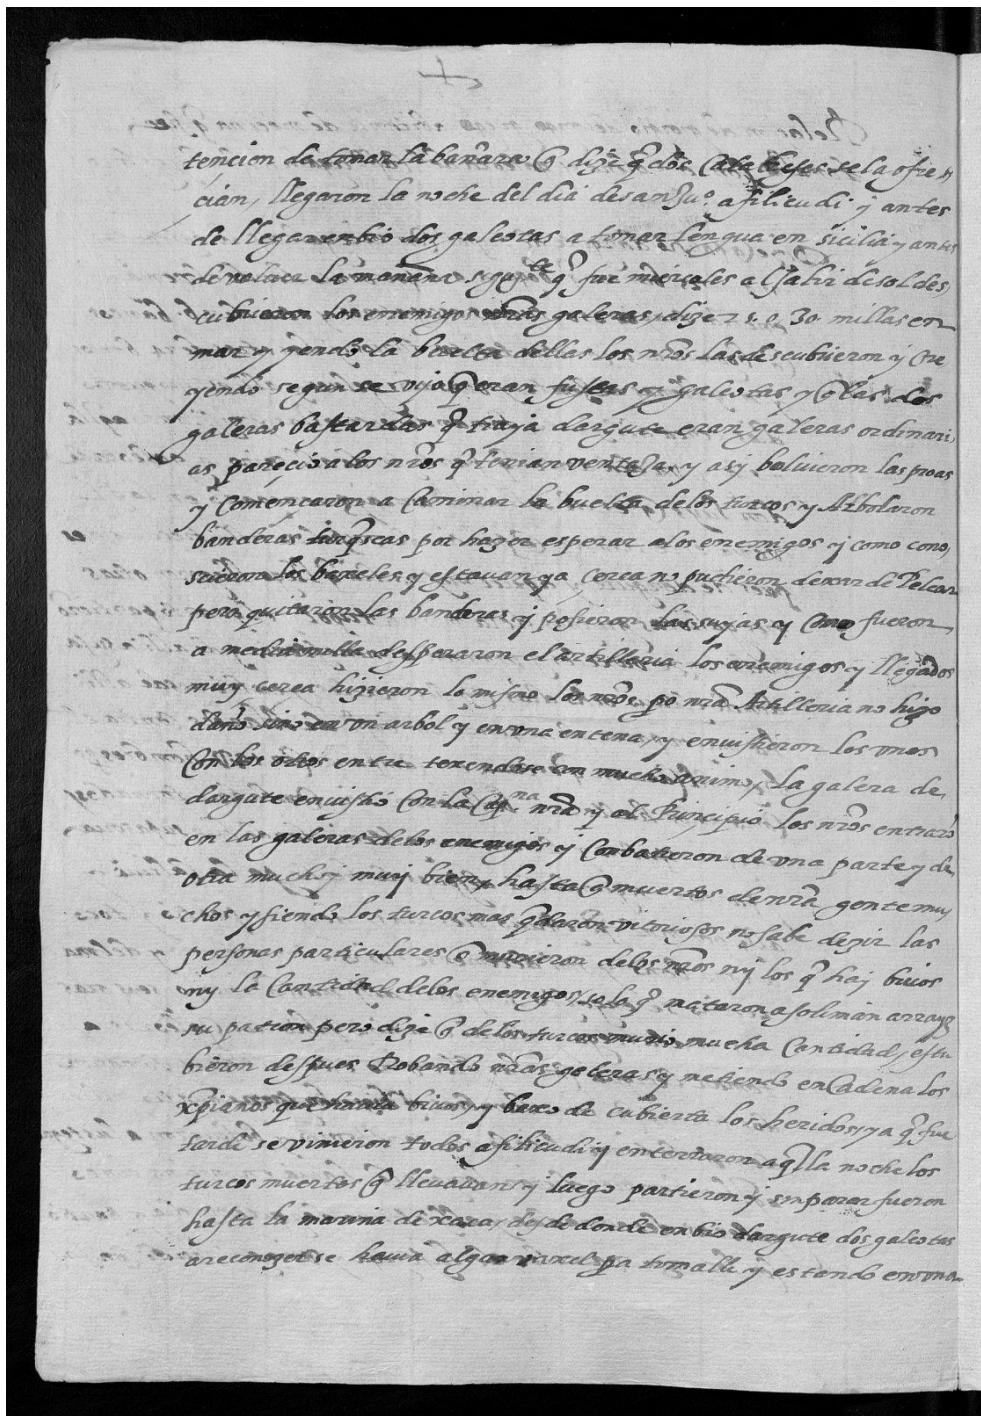 tencion de tomar la bañara q dize q dos calabreses se la ofre
cian, llegaron la noche del dia de san Juº a filicudi y antes
de llegar enbio dos galeotas a tomar lengua en sicilia y antes
de voluer la mañana siguᵗᵉ q fue miercoles al salir del sol des
cubrieron los enemigos nras galeras, dize 2 s. o 30 millas en
mar y yendo la buelta dellas los nros las descubrieron y cre
yendo segun se vijo q eran fustas y galeotas y q las dos
galeras bastardas q traya dargute eran galeras ordinari
as, pareçio a los nros q tenian ventaja, y asy boluieron las proas
y comencaron a caminar la buelta de los turcos y Arbolaron
banderas turqscas por hazer esperar a los enemigos y como cono,
scieron los baxeles y estavan ya cerca no pudieron dexar de Pelear
pero quitaron las banderas y pusieron las suyas y como fueron
a media milla despararon el artilleria los enemigos y llegados
muy cerca hizieron lo mismo los nros, po nra Artilleria no hizo
daño sino en vn arbol y en vna entena, y envistieron los vnos
con los otros entretexendose con mucho animo, la galera de
dargute envistio con la Capⁿᵃ nra y al Principio los nros entraro
en las galeras de los enemigos y conbatieron de vna parte y de
otra mucho y muy bien, hasta q muertos de nra gente mu
chos y siendo los turcos mas qdaron vitoriosos no sabe dezir las
personas particulares q murieron de los nros ny los q hay biuos
ny la cantidad de los enemigos, solo q mataron a soliman arrayz
su patron pero dize q de los turcos murio mucha cantidad, estu
bieron despues Robando nras galeras y metiendo en cadena los
xpianos que hauia biuos, y baxo de cubierta los heridos, ya q fue
tarde se vinieron todos a filicudi y enterraron aqlla noche los
turcos muertos q llevavan, y luego partieron y sin parar fueron
hasta la marina de xaca, desde donde enbio dargute dos galeotas
a reconozer se hauia algun vaxel pa tomalle y estando en vna